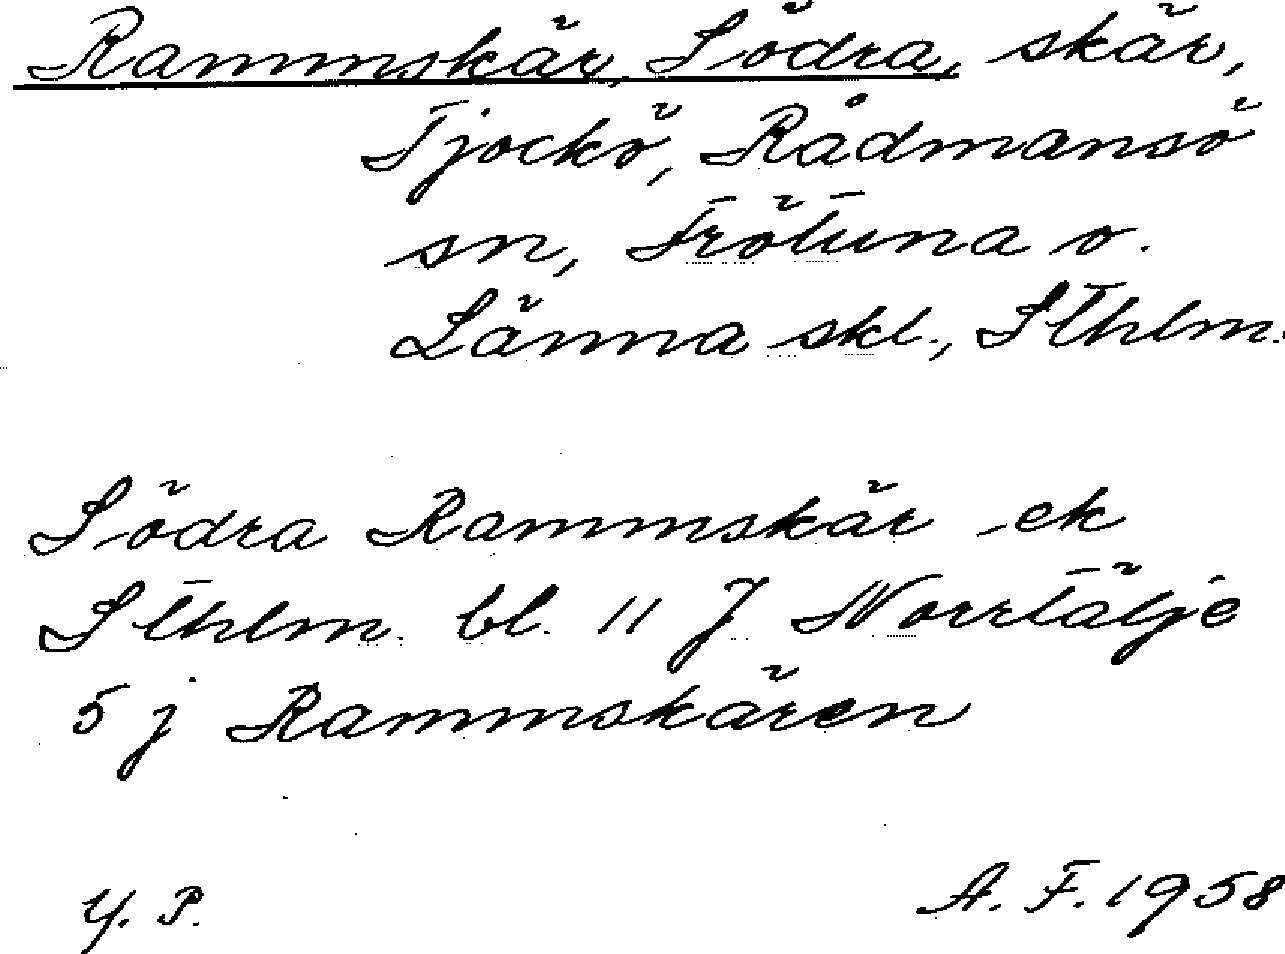 Rammskär, Södra, skär,
Tjockö, Rådmansö
sn, Frötuna o.
Länna skl., Sthlm.
Södra Rammskär ek
Sthlm. bl. 11 J Norrtälje
5 j Rammskären
Y. P.
A. F. 1958